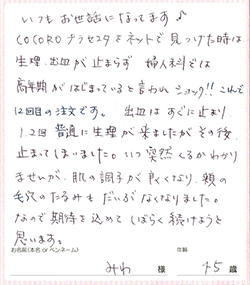 いつもお世話になってます♪
COCOROプラセンタをネットで見つけた時は
生理、出血が止まらず 婦人科では
高年期がはじまっていると言われショック!! これで
12回目の注文です。 出血はすぐに止まり
1.2回 普通に生理が来ましたがその後、
止まってしまいました。いつ突然くるかわかり
ませんが、肌の調子が良くなり、頬の
毛穴のたるみもだいぶなくなりました。
なので期待を込めてしばらく続けようと
思います。
お名前(本名 or ペンネーム) 年齢
みわ 様 45 歳